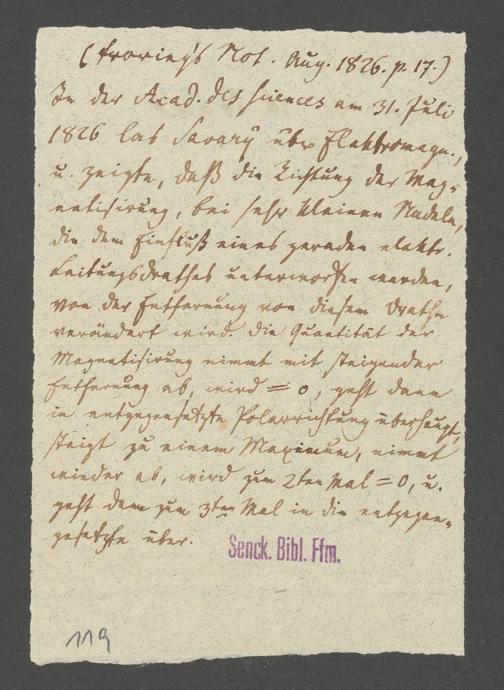 (Froriep's Not. Aug. 1826. p. 17.)
In der Acad. des sciences am 31. Juli
1826 las Savary über Elektromagn.,
u. zeigte, daß die Richtung der Mag-
netisirung, bei sehr kleinen Nadeln,
die dem Einfluß eines geraden elektr.
Leitungsdrathes unterworfen werden,
von der Entfernung von diesem Drathe
verändert wird. Die Quantität der
Magnetisirung nimmt mit steigender
Entfernung ab, wird = 0, geht dann
in entgegengesetzte Polarrichtung überhaupt,
steigt zu einem Maximum, nimmt
wieder ab, wird zum 2ten Mal = 0, u.
geht dann zum 3ten Mal in die entgegen-
gesetzte über.
Senck. Bibl. Ffm.
119